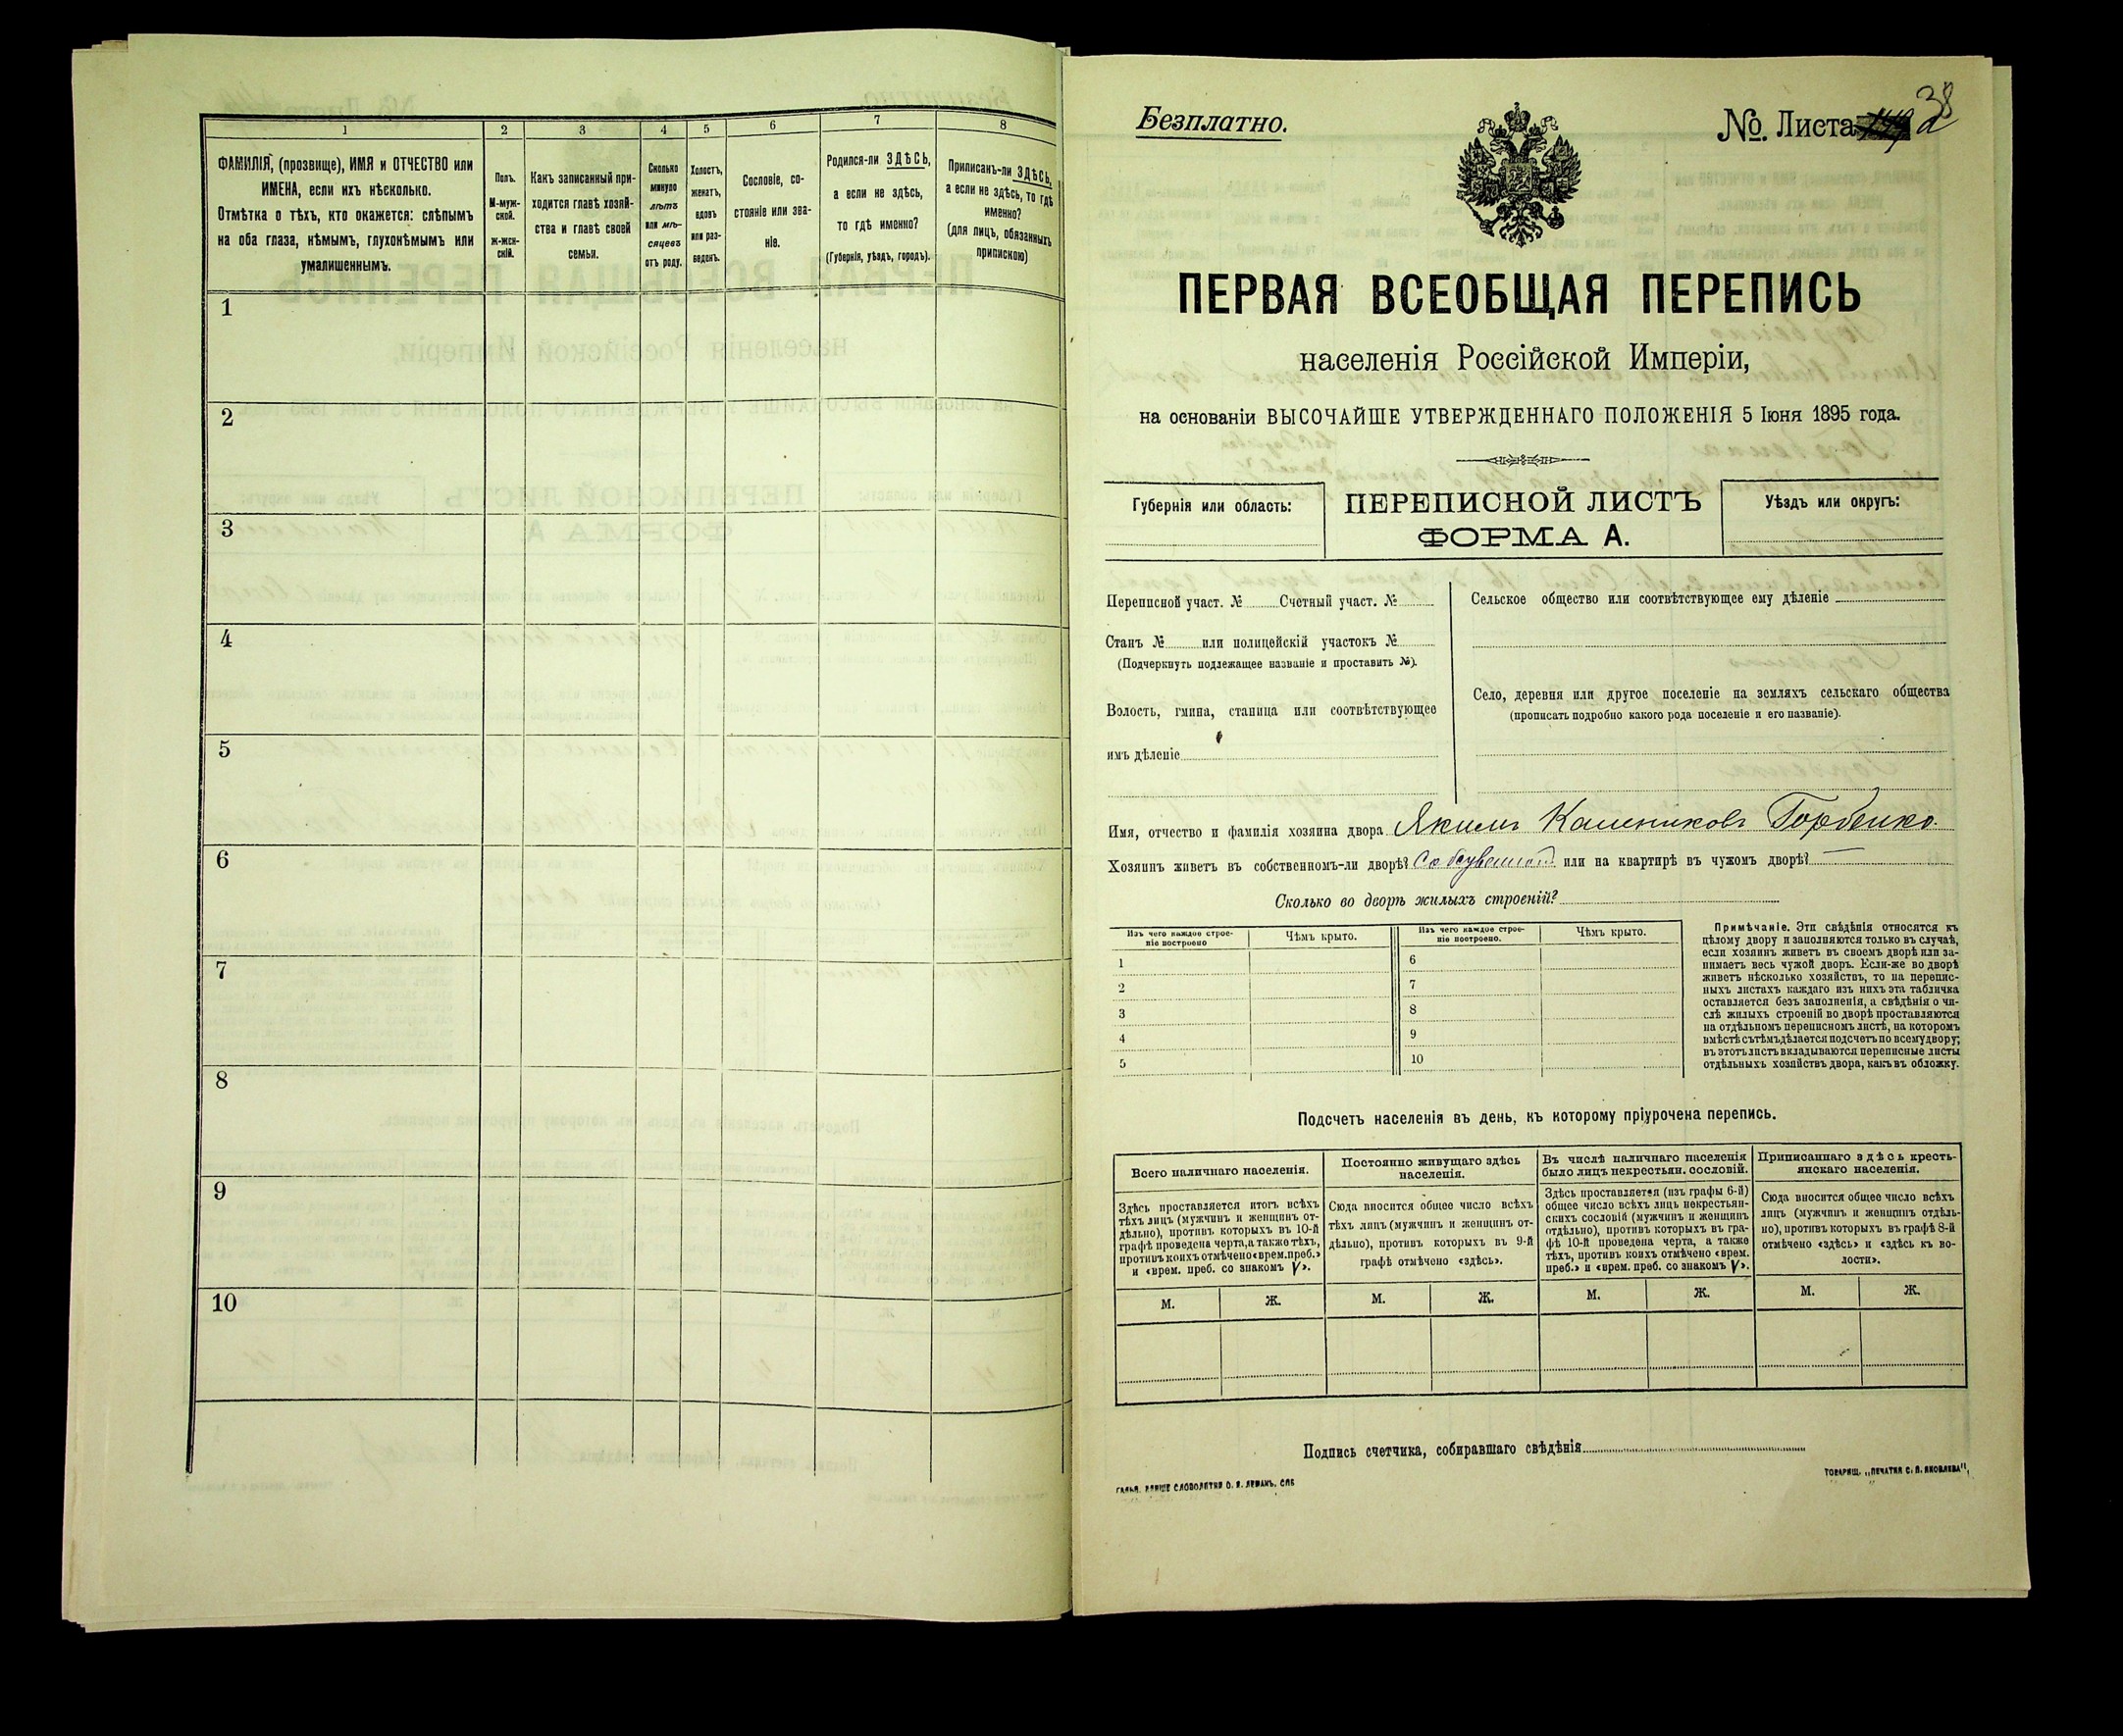 1 2 3 4 5 6 7 8
ФАМИЛІЯ, (прозвище), ИМЯ и ОТЧЕСТВО или
ИМЕНА, если ихъ нѣсколько.
Отмѣтка о тѣхъ, кто окажется: слѣпымъ
на оба глаза, нѣмымъ, глухонѣмымъ или
умалишеннымъ.
Полъ.
М-муж-
ской.
ж-жен-
скій.
Какъ записанный при-
ходится главѣ хозяй-
ства и главѣ своей
семьи.
Сколько
минуло
лѣтъ
или мѣ-
сяцевъ
отъ роду.
Холостъ,
женатъ,
вдовъ
или раз-
веденъ.
Сословіе, со-
стояніе или зва-
ніе.
Родился-ли ЗДѢСЬ,
а если не здѣсь,
то гдѣ именно?
(Губернія, уѣздъ, городъ).
Приписанъ-ли ЗДѢСЬ,
а если не здѣсь, то гдѣ
именно?
(для лицъ, обязанныхъ
припискою)
1
2
3
4
5
6
7
8
9
10
Безплатно.
№. Листа 38
ПЕРВАЯ ВСЕОБЩАЯ ПЕРЕПИСЬ
населенія Россійской Имперіи,
на основаніи ВЫСОЧАЙШЕ УТВЕРЖДЕННАГО ПОЛОЖЕНІЯ 5 Іюня 1895 года.
Губернія или область:
ПЕРЕПИСНОЙ ЛИСТЪ
ФОРМА А.
Уѣздъ или округъ:
Переписной участ. № Счетный участ. №
Станъ № или полицейскій участокъ №
(Подчеркнуть подлежащее названіе и проставить №).
Волость, гмина, станица или соотвѣтствующее
имъ дѣленіе
Сельское общество или соотвѣтствующее ему дѣленіе
Село, деревня или другое поселеніе на земляхъ сельскаго общества
(прописать подробно какого рода поселеніе и его названіе).
Имя, отчество и фамилія хозяина двора Якимъ Горбенко.
Хозяинъ живетъ въ собственномъ-ли дворѣ? или на квартирѣ въ чужомъ дворѣ? —
Сколько во дворѣ жилыхъ строеній?
Изъ чего каждое строе-
ніе построено
Чѣмъ крыто.
Изъ чего каждое строе-
ніе построено.
Чѣмъ крыто.
1 6
2 7
3 8
4 9
5 10
Примѣчаніе. Эти свѣдѣнія относятся къ
цѣлому двору и заполняются только въ случаѣ,
если хозяинъ живетъ въ своемъ дворѣ или за-
нимаетъ весь чужой дворъ. Если-же во дворѣ
живетъ нѣсколько хозяйствъ, то на перепис-
ныхъ листахъ каждаго изъ нихъ эта табличка
оставляется безъ заполненія, а свѣдѣнія о чи-
слѣ жилыхъ строеній во дворѣ проставляются
на отдѣльномъ переписномъ листѣ, на которомъ
вмѣстѣ съ тѣмъ дѣлается подсчетъ по всему двору;
въ этотъ листъ вкладываются переписные листы
отдѣльныхъ хозяйствъ двора, какъ въ обложку.
Подсчетъ населенія въ день, къ которому пріурочена перепись.
Всего наличнаго населенія.
Здѣсь проставляется итогъ всѣхъ
тѣхъ лицъ (мужчинъ и женщинъ от-
дѣльно), противъ которыхъ въ 10-й
графѣ проведена черта, а также тѣхъ,
противъ коихъ отмѣчено «врем. преб.»
и «врем. преб. со знакомъ V».
Постоянно живущаго здѣсь
населенія.
Сюда вносится общее число всѣхъ
тѣхъ лицъ (мужчинъ и женщинъ от-
дѣльно), противъ которыхъ въ 9-й
графѣ отмѣчено «здѣсь».
Въ числѣ наличнаго населенія
было лицъ некрестьян. сословій.
Здѣсь проставляется (изъ графы 6-й)
общее число всѣхъ лицъ некрестьян-
скихъ сословій (мужчинъ и женщинъ
отдѣльно), противъ которыхъ въ гра-
фѣ 10-й проведена черта, а также
тѣхъ, противъ коихъ отмѣчено «врем.
преб.» и «врем. преб. со знакомъ V».
Приписаннаго здѣсь кресть-
янскаго населенія.
Сюда вносится общее число всѣхъ
лицъ (мужчинъ и женщинъ отдѣль-
но), противъ которыхъ въ графѣ 8-й
отмѣчено «здѣсь» и «здѣсь къ во-
лости».
М. Ж. М. Ж. М. Ж. М. Ж.
Подпись счетчика, собиравшаго свѣдѣнія
СЛОВОЛИТНИ О. И. ЛЕМАНЪ, СПБ
ТОВАРИЩ. „ПЕЧАТНЯ С. П. ЯКОВЛЕВА",